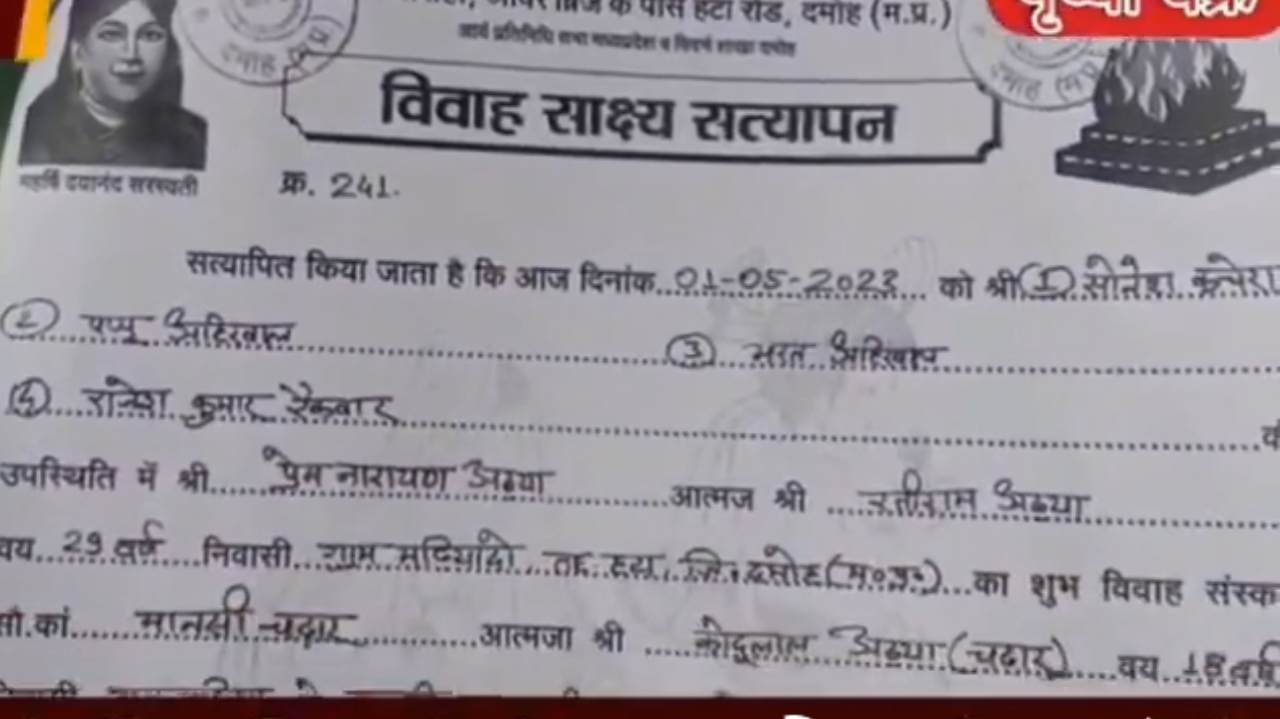 के पास हटा रोड, दमोह (म.प्र.)
आर्य प्रतिनिधि सभा मध्यप्रदेश व विदर्भ शाखा दमोह
दमोह (म.प्र)
दमोह (म.प्र
विवाह साक्ष्य सत्यापन
महर्षि दयानंद सरस्वती
क्र. 241.
सत्यापित किया जाता है कि आज दिनांक..01-05-2023... को श्री ① सोनेश
② पप्पू अहिरवाल ③ भरत अहिरवाल
④ राजेश कुमार रैकवार
उपस्थिति में श्री.....प्रेम नारायण अठया.....आत्मज श्री .....रतीराम अठया
वय..29 वर्ष...निवासी..ग्राम मड़ियादो...तह. हटा, जि. दमोह (म०प्र०)...का शुभ विवाह संस्क
सौ.कां......मानसी चढ़ार.....आत्मजा श्री .....कोदूलाल अठया (चढ़ार)....वय..18 वर्ष